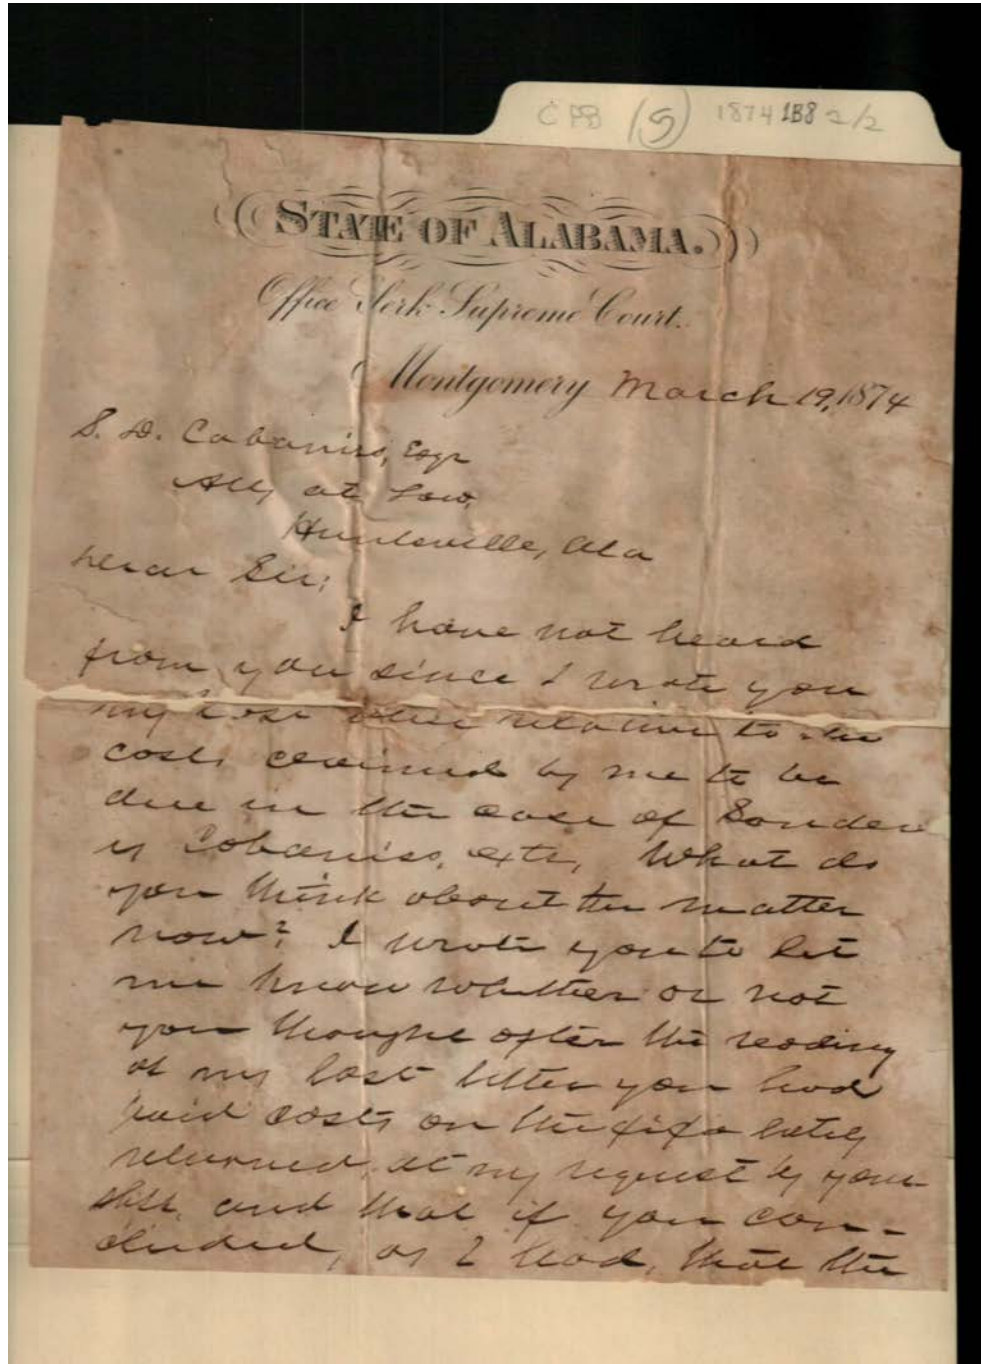 CPB (5) 1874 1B8 2/2
STATE OF ALABAMA.
Office Clerk Supreme Court.
Montgomery March 19, 1874
S. D. Cabaniss, Esqr
Atty at Law,
Huntsville, Ala
Dear Sir;
I have not heard
from you since I wrote you
my last letter relative to the
costs claimed by me to be
due in the case of
vs Cabaniss, exr, What do
you think about the matter
now? I wrote you to let
me know whether or not
you thought after the reading
of my last letter you had
paid costs on the fi fa lately
returned, at my request by your
shff. and that if you con-
cluded, as I had, that the